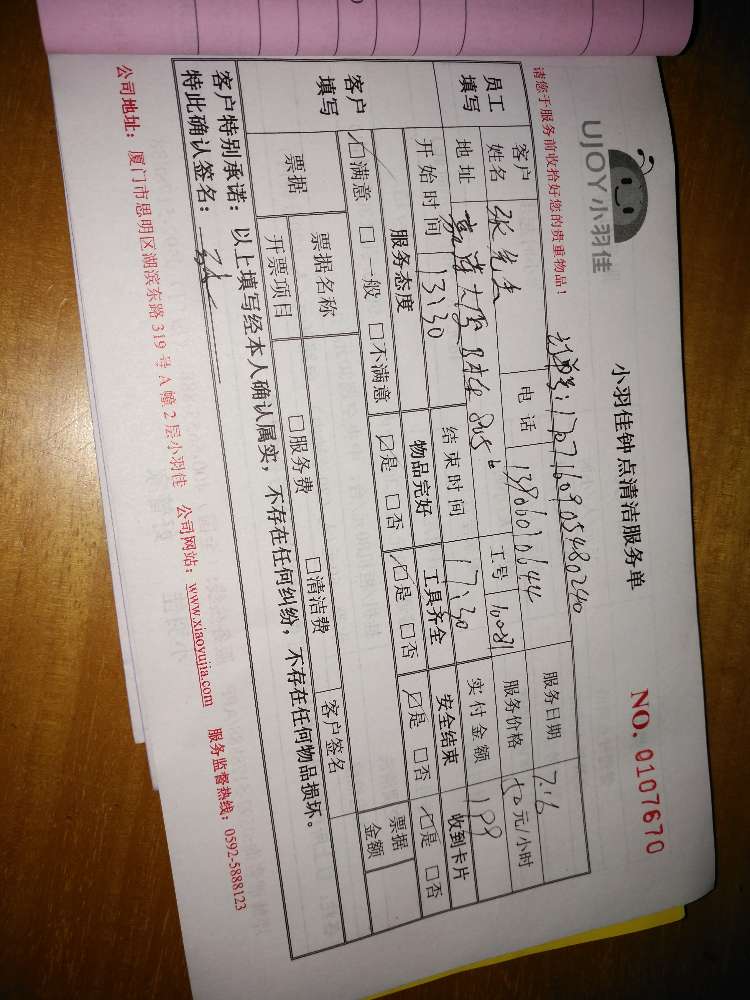 UJOY小羽佳
小羽佳钟点清洁服务单
NO. 0107670
请您于服务前收拾好您的贵重物品！
员工填写
客户姓名 张先生 电话 13806010644 服务日期 7.16
地址 嘉 大厦 805 工号 10081 服务价格 50元/小时
开始时间 13:30 结束时间 17:30 实付金额 199
客户填写
服务态度 物品完好 工具齐全 安全结束 收到卡片
☑满意 □一般 □不满意 ☑是 □否 ☑是 □否 ☑是 □否 ☑是 □否
票据 票据名称 票据金额
开票项目 □服务费 □清洁费 客户签名
客户特别承诺：以上填写经本人确认属实，不存在任何纠纷，不存在任何物品损坏。
特此确认签名：
公司地址：厦门市思明区湖滨东路319号A幢2层小羽佳 公司网站：www.xiaoyujia.com 服务监督热线：0592-5888123